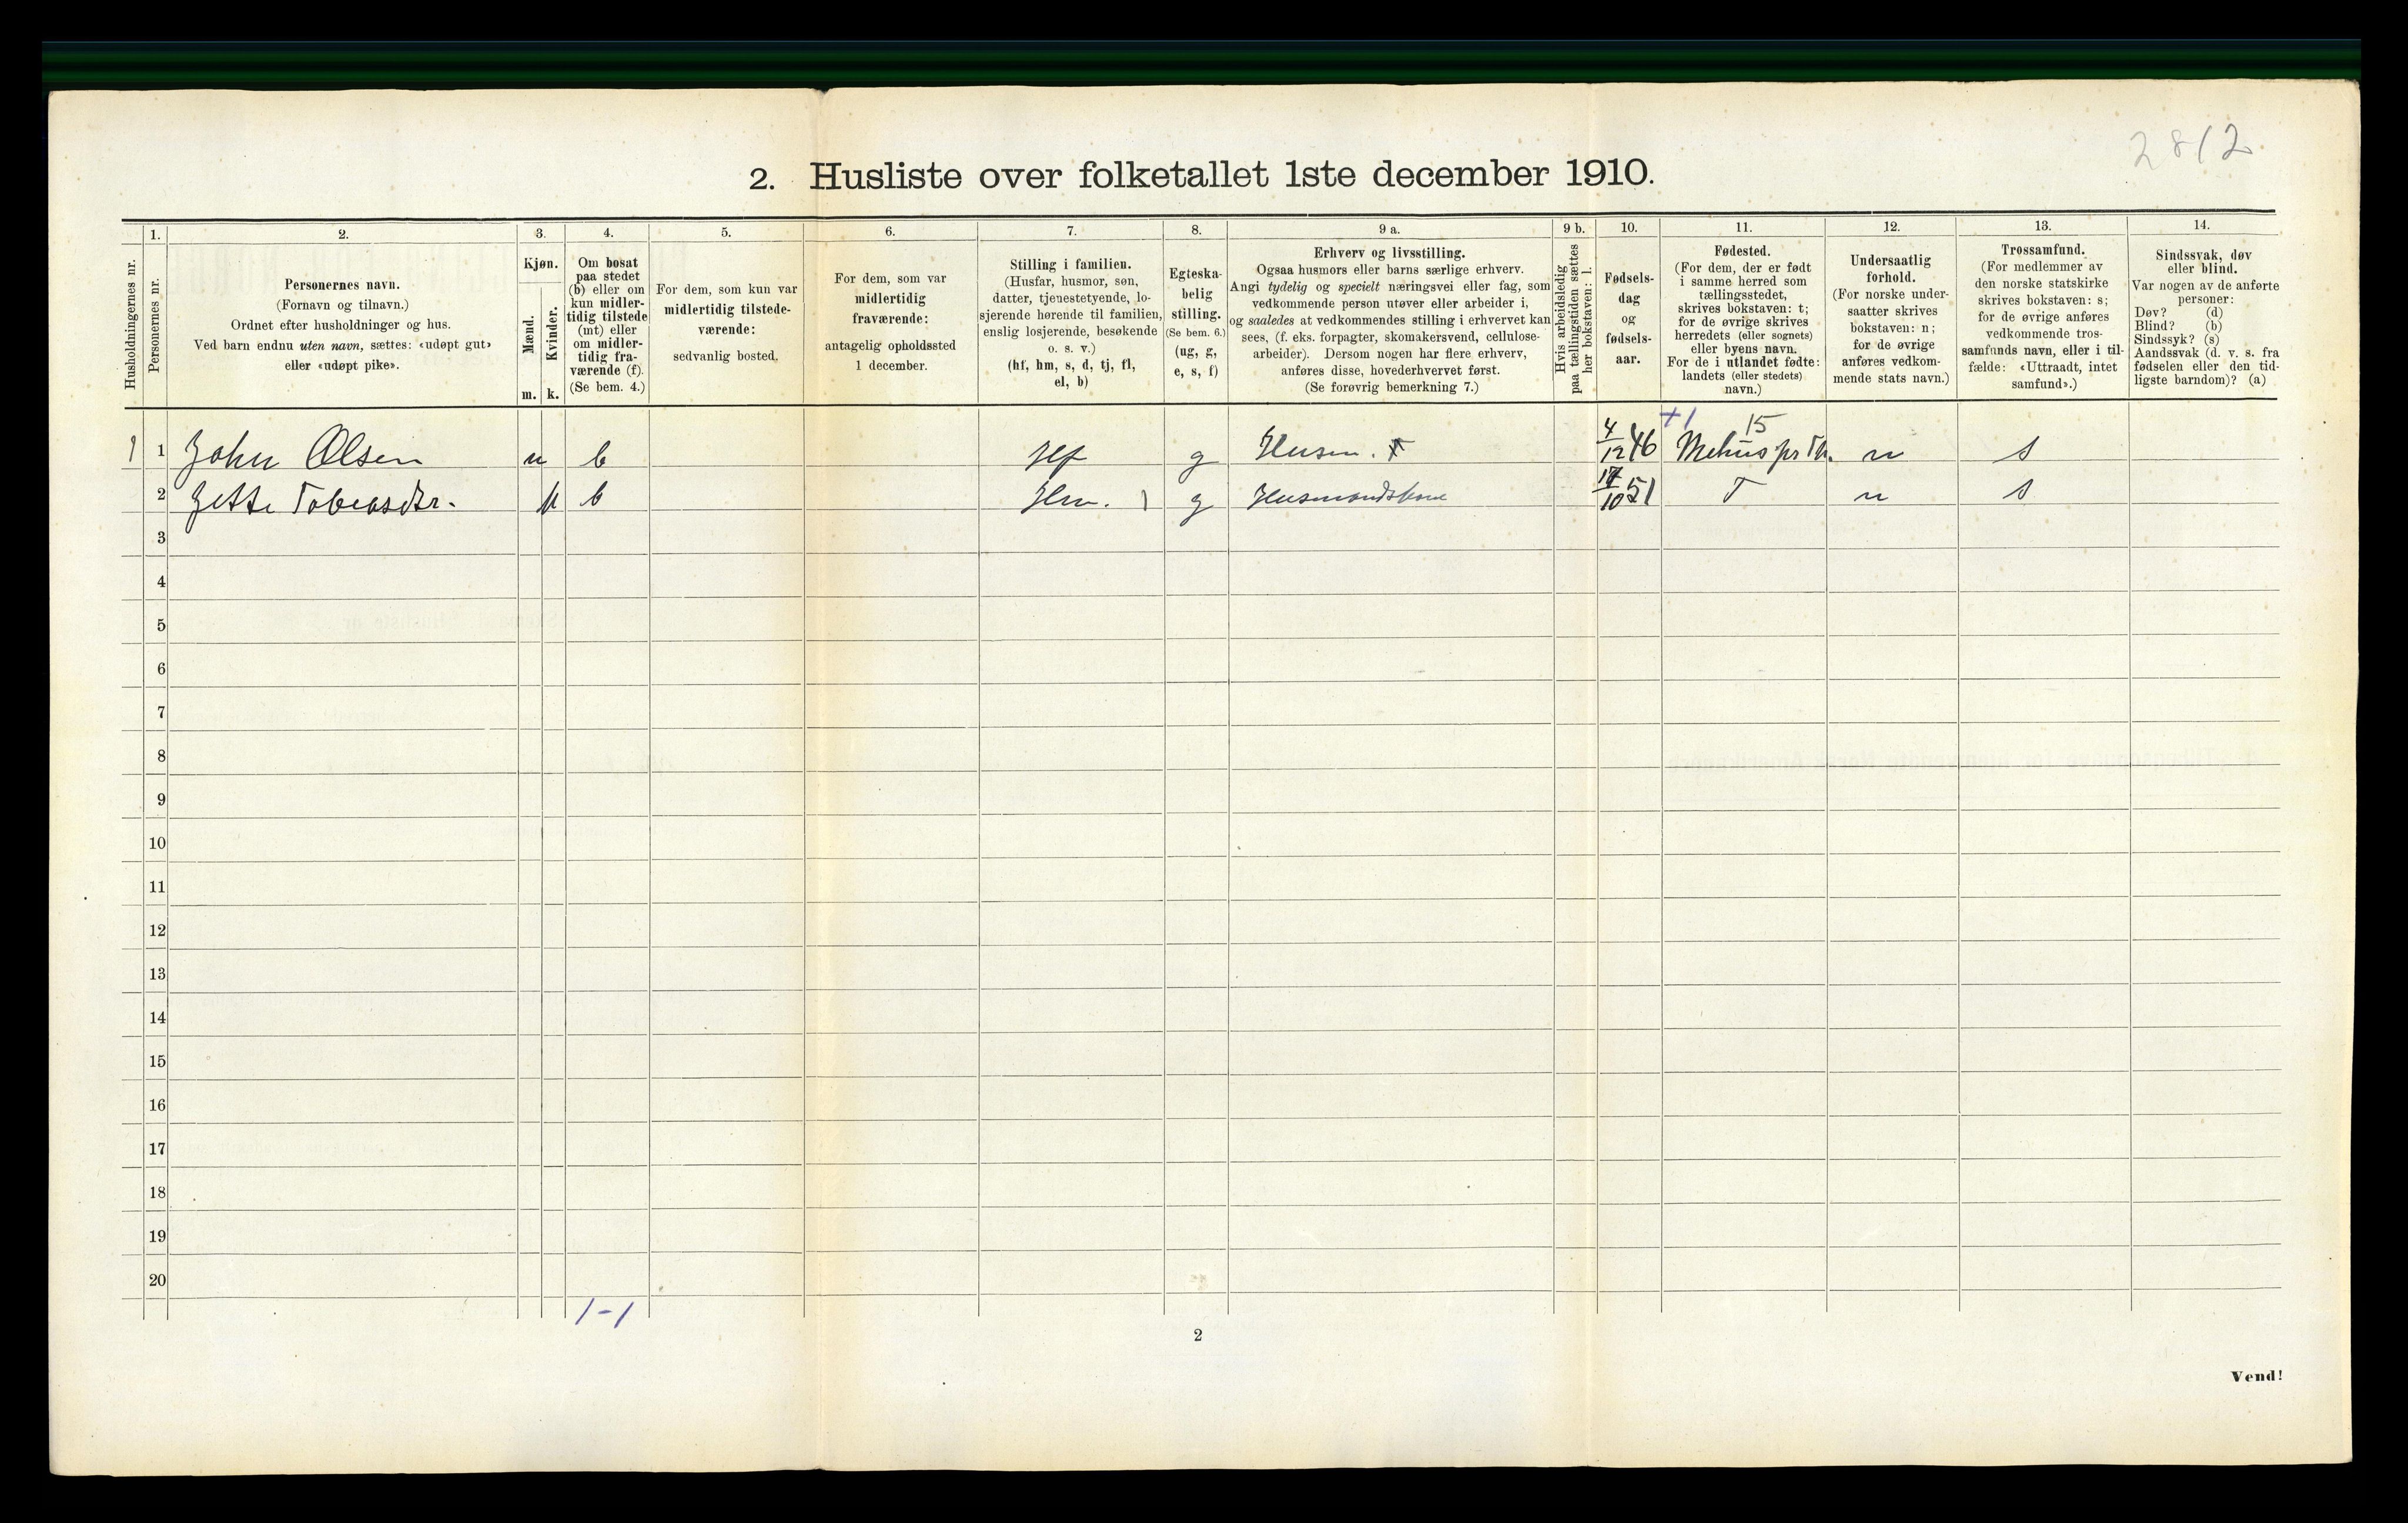 2812
2. Husliste over folketallet 1ste december 1910.
Husholdningernes nr.
1.
Personernes nr.
2.
Personernes navn.
(Fornavn og tilnavn.)
Ordnet efter husholdninger og hus.
Ved barn endnu uten navn, sættes: «udøpt gut»
eller «udøpt pike».
3.
Kjøn.
Mænd.
Kvinder.
m.
k.
4.
Om bosat
paa stedet
(b) eller om
kun midler-
tidig tilstede
(mt) eller
om midler-
tidig fra-
værende (f).
(Se bem. 4.)
5.
For dem, som kun var
midlertidig tilstede-
værende:
sedvanlig bosted.
6.
For dem, som var
midlertidig
fraværende:
antagelig opholdssted
1 december.
7.
Stilling i familien.
(Husfar, husmor, søn,
datter, tjenestetyende, lo-
sjerende hørende til familien,
enslig losjerende, besøkende
o. s. v.)
(hf, hm, s, d, tj, fl,
el, b)
8.
Egteska-
belig
stilling.
(Se bem. 6.)
(ug, g,
e, s, f)
9 a.
Erhverv og livsstilling.
Ogsaa husmors eller barns særlige erhverv.
Angi tydelig og specielt næringsvei eller fag, som
vedkommende person utøver eller arbeider i,
og saaledes at vedkommendes stilling i erhvervet kan
sees, (f. eks. forpagter, skomakersvend, cellulose-
arbeider). Dersom nogen har flere erhverv,
anføres disse, hovederhvervet først.
(Se forøvrig bemerkning 7.)
9 b.
Hvis arbeidsledig
paa tællingstiden sættes
her bokstaven: l.
10.
Fødsels-
dag
og
fødsels-
aar.
11.
Fødested.
(For dem, der er født
i samme herred som
tællingsstedet,
skrives bokstaven: t;
for de øvrige skrives
herredets (eller sognets)
eller byens navn.
For de i utlandet fødte:
landets (eller stedets)
navn.)
12.
Undersaatlig
forhold.
(For norske under-
saatter skrives
bokstaven: n;
for de øvrige
anføres vedkom-
mende stats navn.)
13.
Trossamfund.
(For medlemmer av
den norske statskirke
skrives bokstaven: s;
for de øvrige anføres
vedkommende tros-
samfunds navn, eller i til-
fælde: «Uttraadt, intet
samfund».)
14.
Sindssvak, døv
eller blind.
Var nogen av de anførte
personer:
Døv? (d)
Blind? (b)
Sindssyk? (s)
Aandssvak (d. v. s. fra
fødselen eller den tid-
ligste barndom)? (a)
+1 15
1 1 John Olsen m b Hf g Husm. F 4/12 46 Mehus pr Th. n s
2 Jette Tobiasdtr. k b Hm. 1 g Husmandskone 17/10 51 T n s
3
4
5
6
7
8
9
10
11
12
13
14
15
16
17
18
19
20
1-1
2
Vend!